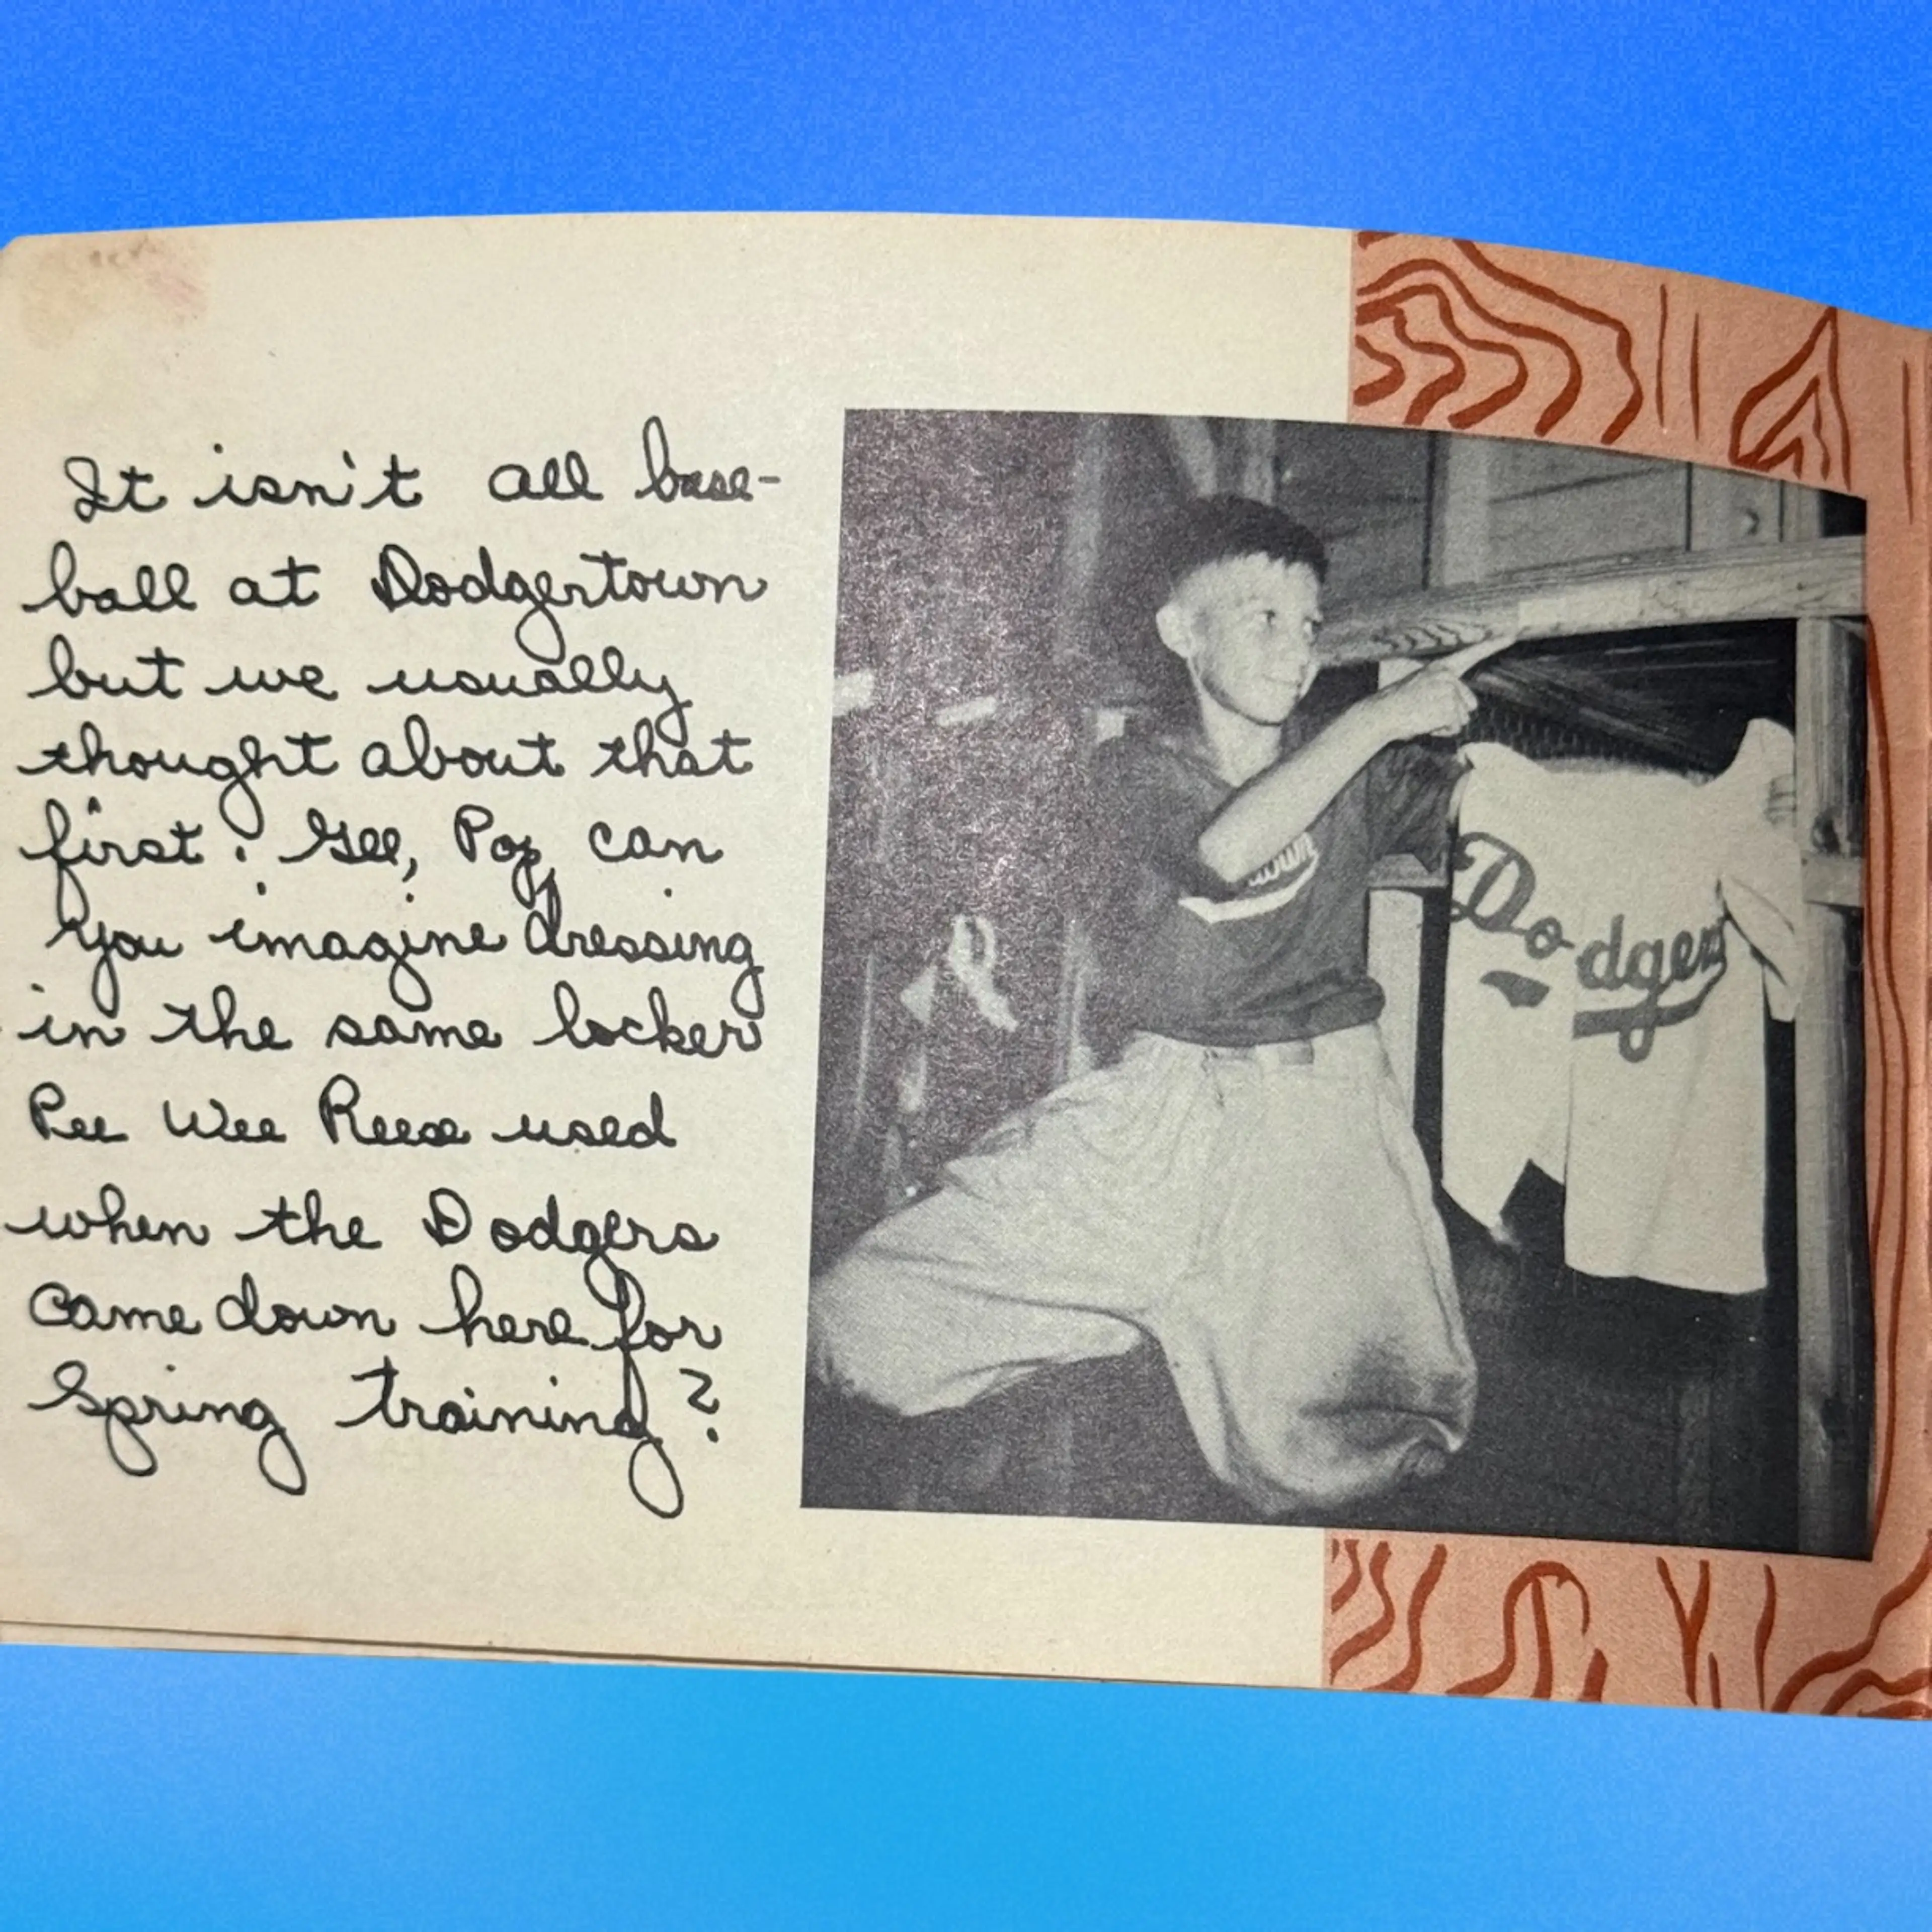 It isn't all base-
ball at Dodgertown
but we usually
thought about that
first. Gee, Pop, can
you imagine dressing
in the same locker
Pee Wee Reese used
when the Dodgers
came down here for
Spring training?
Dodgers